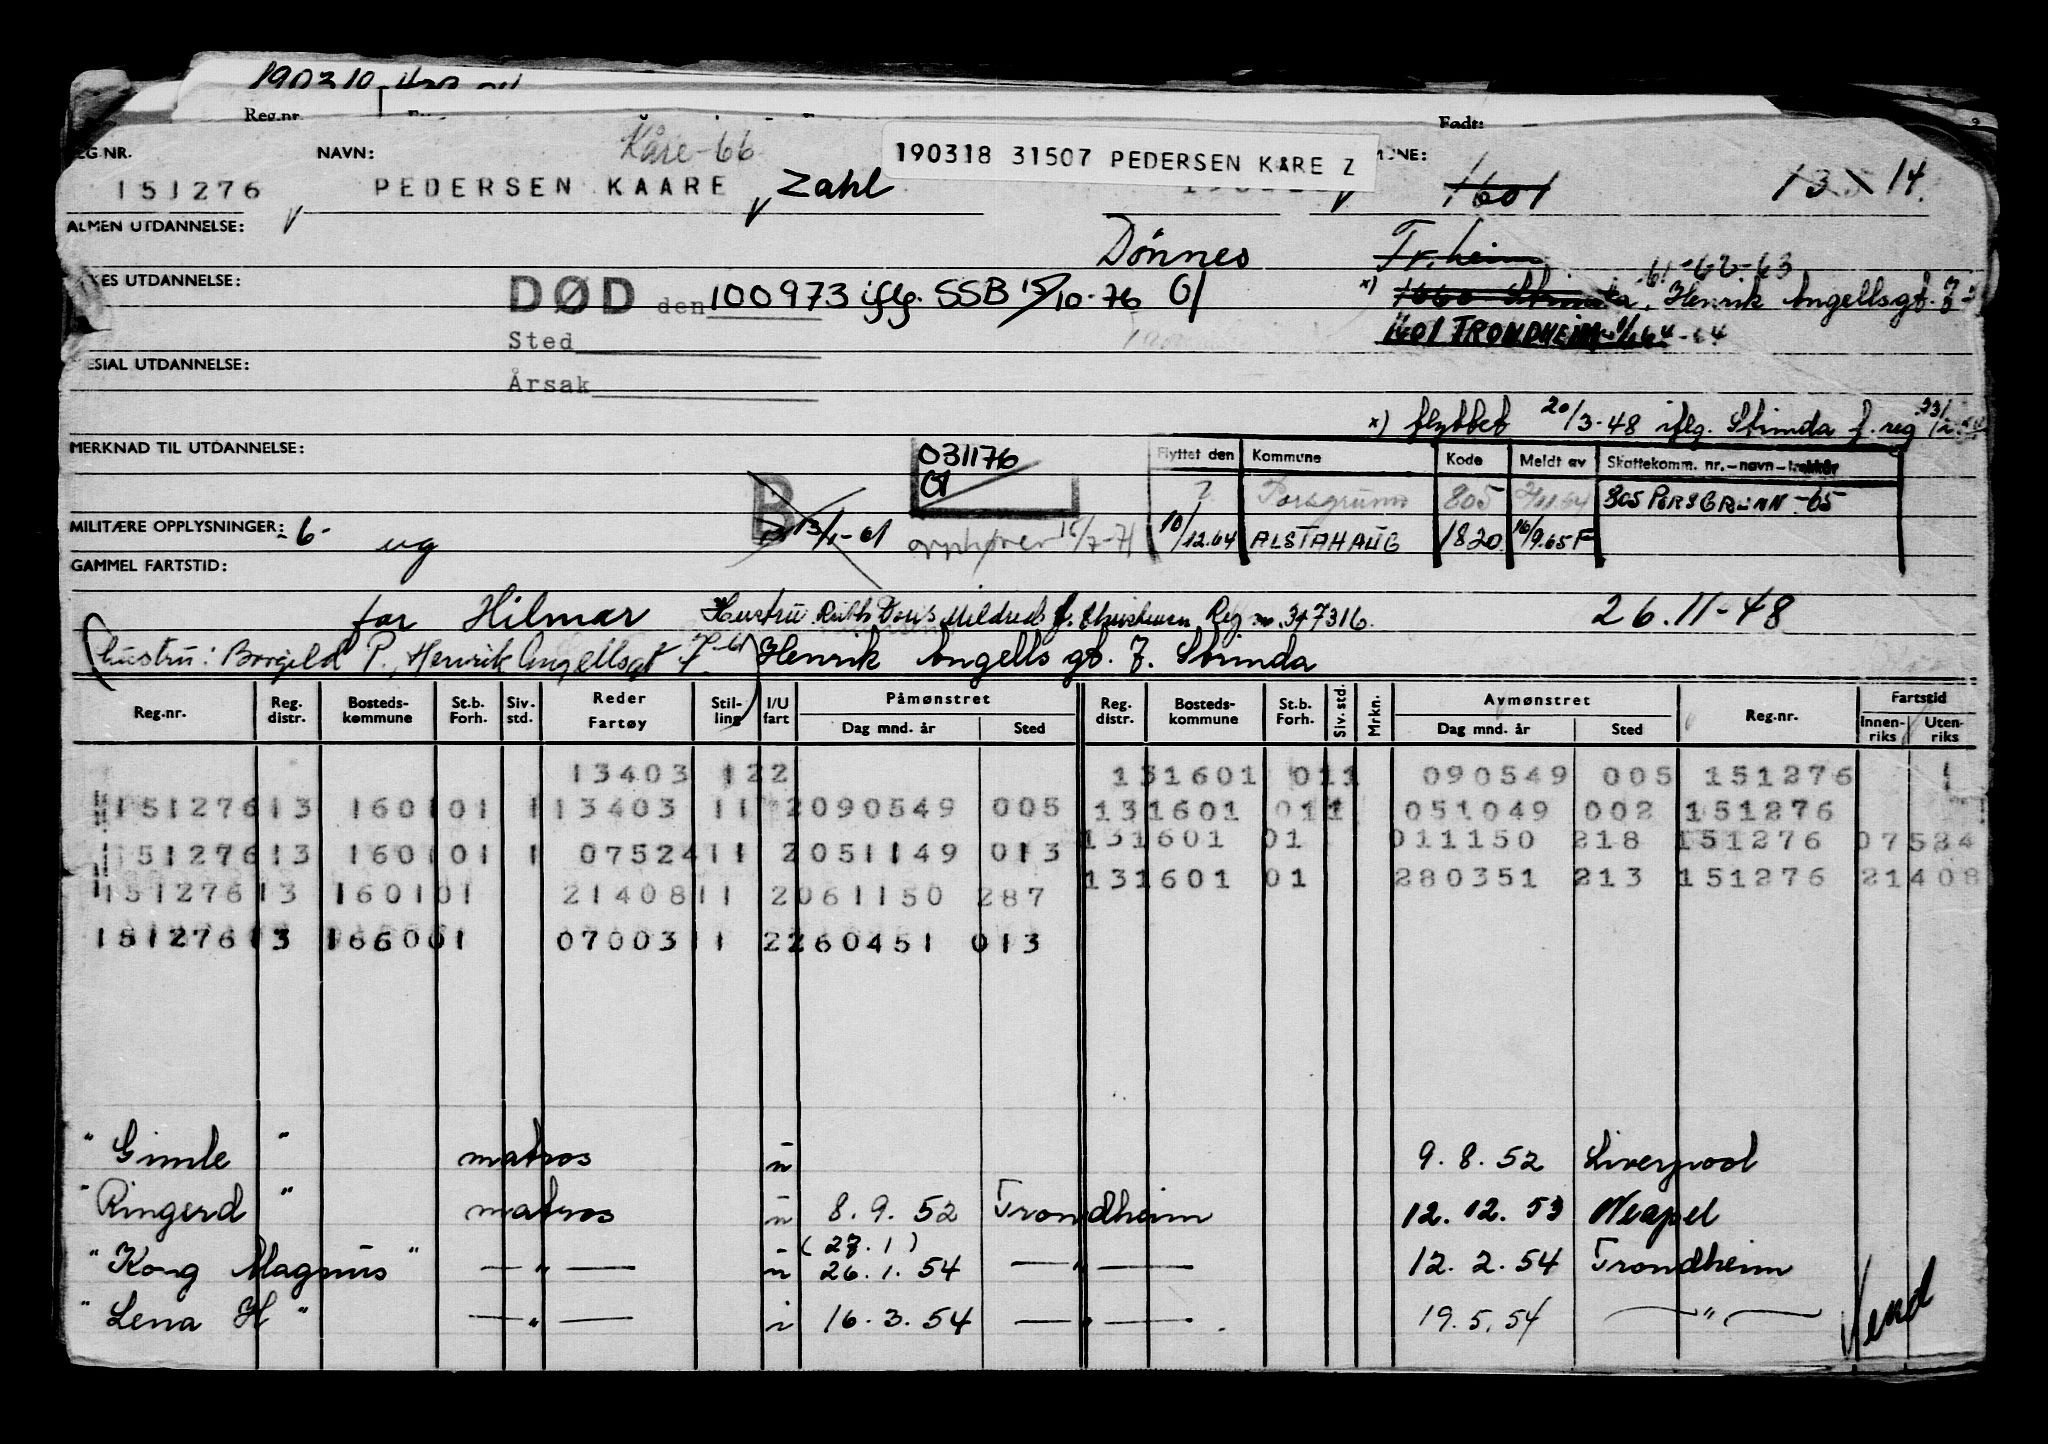 190310
Reg.nr. Født:
REG NR. NAVN: Kåre-66 190318 31507 PEDERSEN KARE Z
151276 PEDERSEN KAARE Zahl 1601 13 \ 14.
ALMEN UTDANNELSE:
Dönnes Tr.heim
61-62-63
DØD den 100973 iflg. SSB 15/10-76 Gl x) 1660 Strinda, Henrik Angellsgt. 7
Sted 1601 TRONDHEIM
ESIAL UTDANNELSE:
Årsak
x) flyttet 20/3-48 iflg. Strinda f.reg
MERKNAD TIL UTDANNELSE: 031176 Flyttet den Kommune Kode Meldt av Skattekomm. nr.-navn-trekkår
Gl
B ? Porsgrunn 805 805 PORSGRUNN-65
MILITÆRE OPPLYSNINGER: 6- ug 13/1-61 opphører 15/7-71 10/12.64 ALSTAHAUG 1820 16/9.65 F
GAMMEL FARTSTID:
far Hilmar Hustru Ruth Doris Mildred f. Christensen Reg nr. 347316. 26.11-48
hustru: Borgild P., Henrik Angellsgt 7 Henrik Angells gt. 7. Strinda
Reg.nr. Reg. distr. Bosteds-kommune St.b. Forh. Siv. std. Reder Fartøy Stil-ling I/U fart Påmønstret Dag mnd. år Sted Reg. distr. Bosteds-kommune St.b. Forh. Siv. std. Mrkn. Avmønstret Dag mnd. år Sted Reg.nr. Fartstid Innen-riks Uten-riks
13403 122 131601 011 090549 005 151276 1
151276 13 1601 01 1 13403 11 2 090549 005 131601 011 051049 002 151276
131601 01 011150 218 151276 07524
151276 13 1601 01 1 07524 11 2 051149 013
131601 01 280351 213 151276 21408
151276 13 1601 01 21408 11 2 061150 287
151276 13 1660 01 07003 11 2 260451 013
" Gimle " matros u 9.8.52 Liverpool
" Ringerd " matros u 8.9.52 Trondheim 12.12.53 Neapel
(27.1)
" Kong Magnus " — " — u 26.1.54 — " — 12.2.54 Trondheim
" Lena H " — " — i 16.3.54 — " — 19.5.54 — " —
Vend